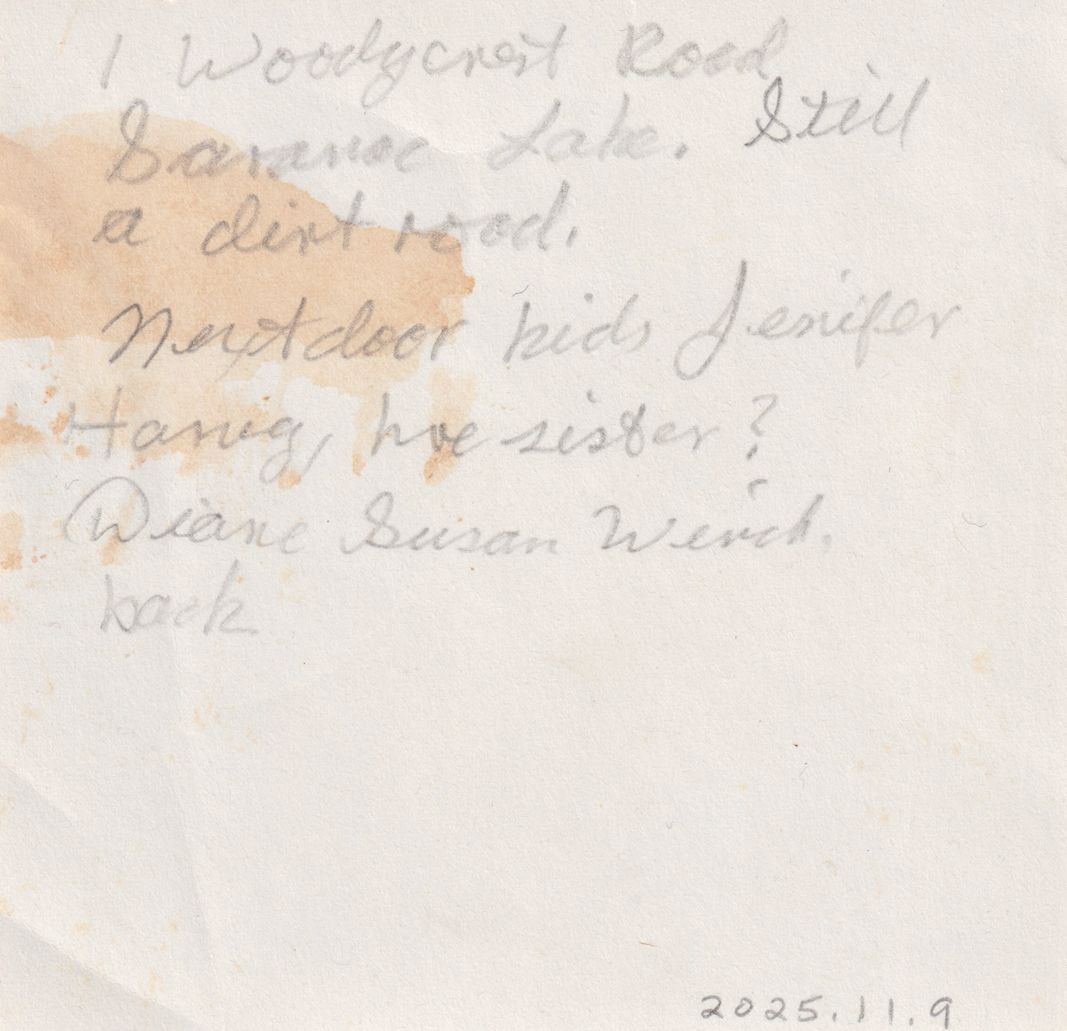 1 Woodycrest Road
Saranac Lake. Still
a dirt road.
Nextdoor kids Jenifer
sister?
Diane Susan
back
2025.11.9